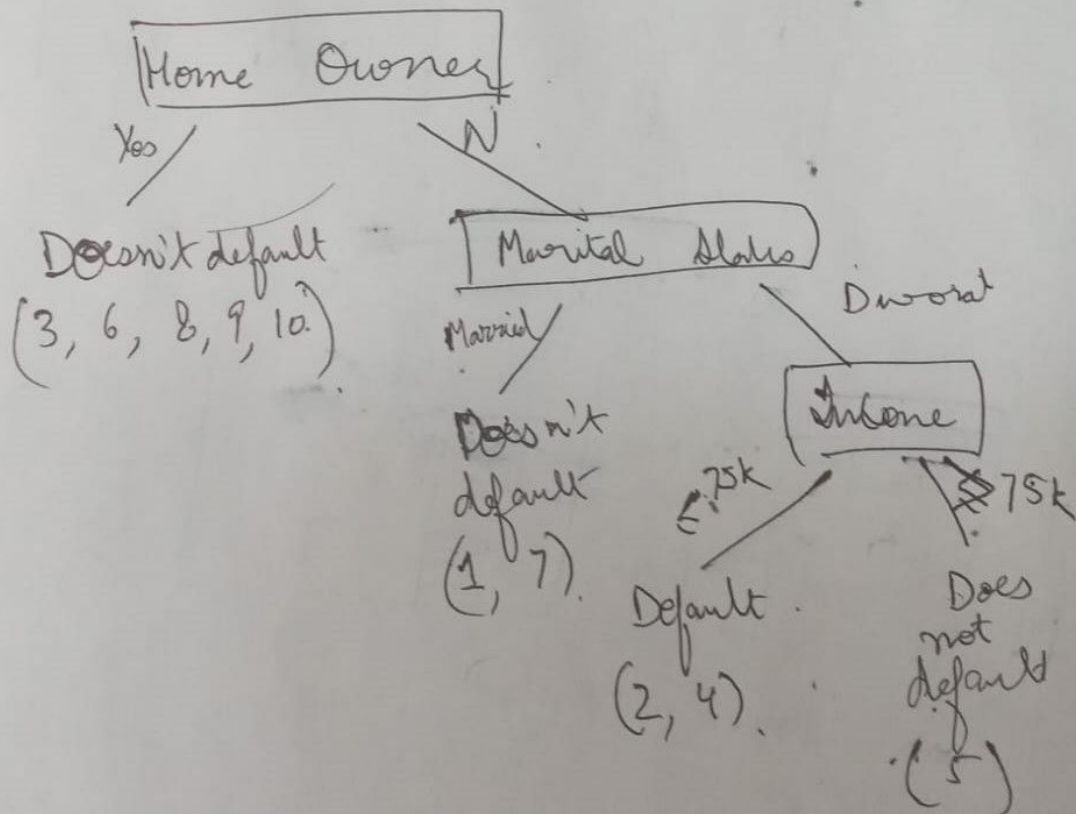 Home Owner
Yes
N
Doesn't default
(3, 6, 8, 9, 10.)
Marital
Married
Doesn't
default
(1, 7).
Income
75k
Default
(2, 4).
75k
Does
not
default
(5)